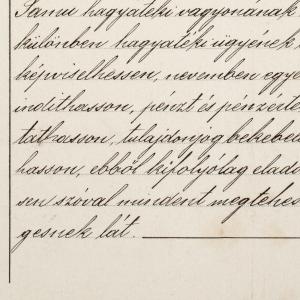 Samu hagyatéki vagyonának
különben hagyatéki ügyének
képviselhessen, nevemben egye
indithasson, pénzt és pénzérté
tathasson, tulajdonjog bekebele
hasson, ebből kifolyólag elado
sen szóval mindent megtehes
gesnek lát.